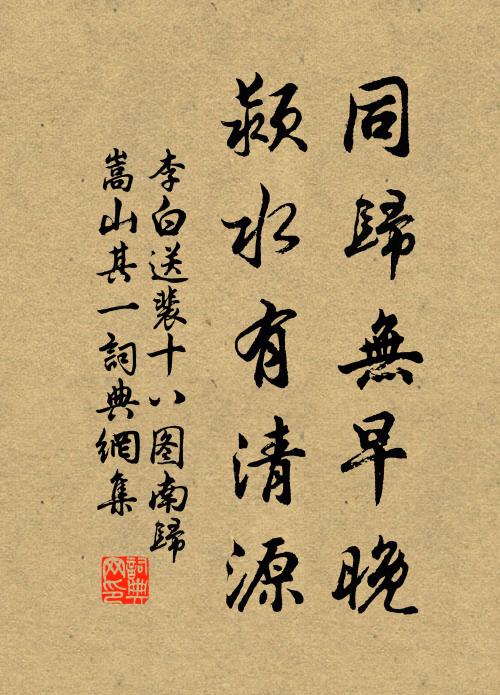 同歸無早晚
潁水有清源
李白送裴十八图南歸
嵩山其一詞典網集